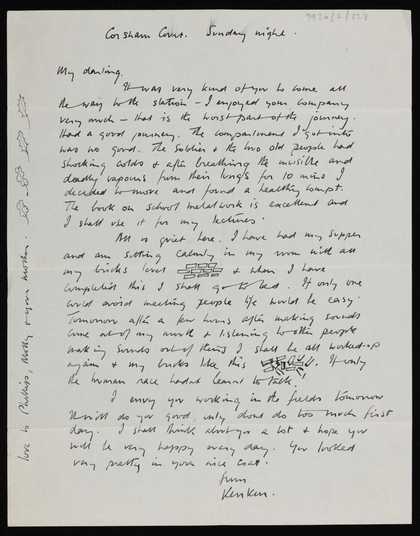 9920/2/228
Corsham Court. Sunday night.
My darling,
It was very kind of you to come all
the way to the station - I enjoyed your company
very much - that is the worst part of the journey.
Had a good journey. The compartment I got into
was no good. The soldier & the two old people had
shocking colds & after breathing the invisible and
deadly vapours from their lungs for 10 mins I
decided to move and found a healthy compt.
The book on school metalwork is excellent and
I shall use it for my lectures.
All is quiet here. I have had my supper
and am sitting calmly in my room with all
my bricks level & when I have
completed this I shall go to bed. If only one
could avoid meeting people life would be easy.
Tomorrow after a few hours after making sounds
come out of my mouth & listening to other people
making sounds out of theirs I shall be all worked-up
again & my bricks like this. If only
the human race hadnt learnt to talk!
I envy you working in the fields tomorrow
it will do you good, only dont do too much first
day. I shall think about you a lot & hope you
will be very happy every day. You looked
very pretty in your nice coat.
from
KenKen.
love to Phillips, Molly & your mother.